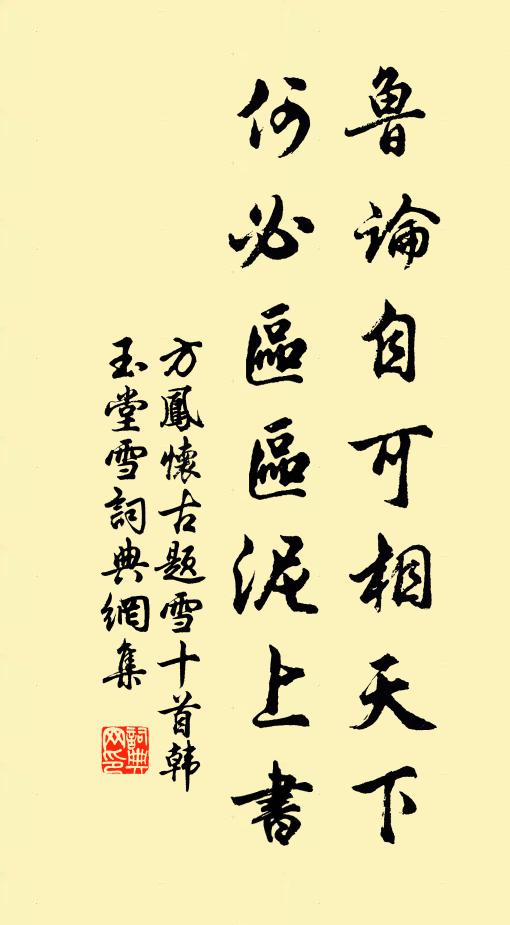 鲁論自可相天下
何必區區泥上書
方鳳懷古題雪十首韩
玉堂雪詞典網集
詞典
网印